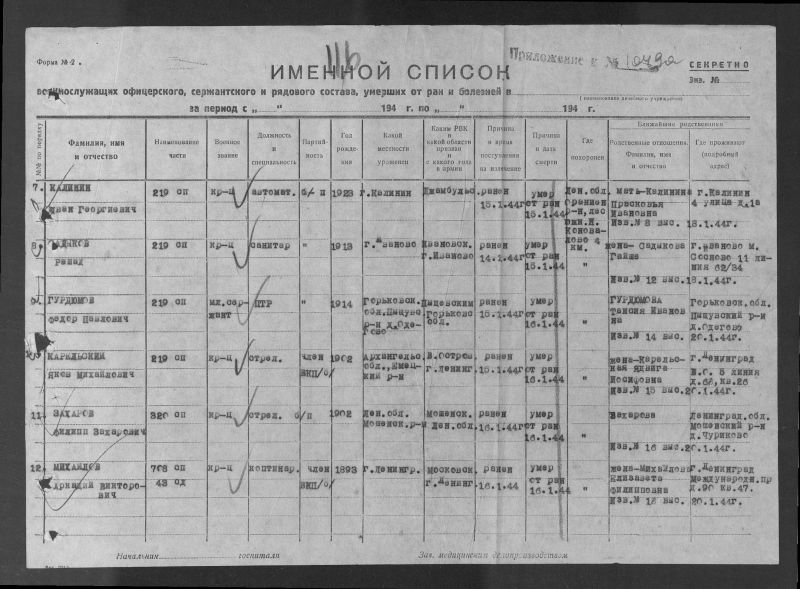 Форма № 2.
116
Приложение к № 1049а
СЕКРЕТНО
ИМЕННОЙ СПИСОК
Экз. №
военнослужащих офицерского, сержантского и рядового состава, умерших от ран и болезней в
(наименование лечебного учреждения)
за период с „ “ 194 г. по „ “ 194 г.
№№ по порядку
Фамилия, имя и отчество
Наименование части
Военное звание
Должность и специальность
Партийность
Год рождения
Какой местности уроженец
Каким РВК и какой области призван и с какого года в армии
Причина и время поступления на излечение
Причина и дата смерти
Где похоронен
Ближайшие родственники
Родственные отношения. Фамилия, имя и отчество
Где проживают (подробный адрес)
7. КАЛИНИН 219 сп кр-ц автомат. б/п 1923 г.Калинин Джамбульс. ранен умер Лен.обл. мать-Калинина г.Калинин
Иван Георгиевич 15.1.44г от ран Ораниен Прасковья 4 улица д.1а
15.1.44 р-н, лес Ивановна
южн.н. Изв.№ 8 выс. 18.1.44г.
Конова-
8. САДЫКОВ 219 сп кр-ц санитар " 1913 г.Иваново Ивановск. ранен умер лово 4 жена- Садыкова г.Иваново м.
Рашад г.Иваново 14.1.44г от ран км. Гайша Сосново 11 ли-
15.1.44 " ния 62/34
Изв.№ 12 выс. 18.1.44г.
9. ГУРДЮМОВ 219 сп мл.сер- ПТР " 1914 Горьковск. ранен умер ГУРДЮМОВА Горьковск.обл.
Федор Павлович жант обл. Горьков 15.1.44г от ран " Таисия Иванов Пыцувский р-н
р-н д.Оде- обл. 16.1.44 на д.Одегово
гово Изв.№ 14 выс. 20.1.44г.
10. КАРЕЛЬСКИМ 219 сп кр-ц стрел. член 1902 Архангельс. В.Остров. ранен умер жена-Карельс- г.Ленинград
Яков Михайлович ВКП/б/ обл.,Емец- г.Ленинг. 15.1.44г от ран " кая Ядвига В.О. 5 линия
кий р-н 16.1.44 Иосифовна д.68, кв.26
Изв.№ 15 выс. 20.1.44г.
11. ЗАХАРОВ 320 сп кр-ц стрел. б/п 1902 Лен.обл. Мошенск. ранен умер Захарова Ленинград.обл.
Филипп Захарович Мошенск.р-н Лен.обл. 16.1.44г от ран " Мошенский р-н
16.1.44 д.Чуриково
Изв.№ 16 выс. 20.1.44г.
12. МИХАЙЛОВ 708 сп кр-ц коптинар. член 1893 г.Ленингр. Московск. ранен умер жена-Михайлова г.Ленинград
Аркадий Викторо- 43 сд ВКП/б/ г.Ленинг. 16.1.44 от ран " Елизавета Международн.пр
вич 16.1.44 Филипповна д.90 кв.47.
Изв.№ 13 выс. 20.1.44г.
Начальник госпиталя
Зав. медицинским делопроизводством